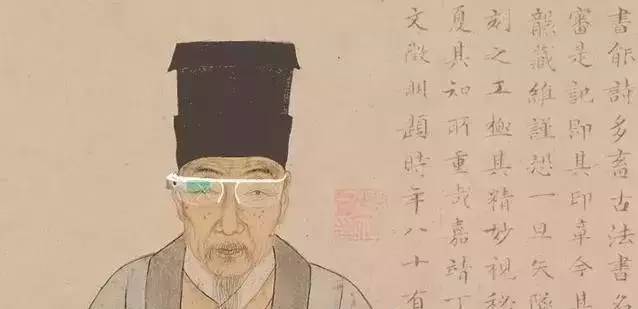 書能詩多畜古法書名
審是記即其印章今其
襲藏維謹恐一旦失
刻之工極其精妙視秘
夏其知所重哉嘉靖丁
文徵明題時年八十有